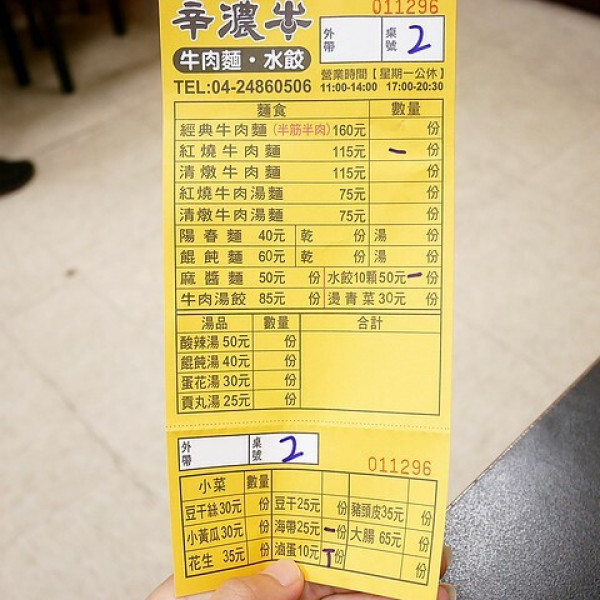 辛濃牛
011296
外帶 桌號 2
牛肉麵・水餃
TEL:04-24860506
營業時間【星期一公休】
11:00-14:00 17:00-20:30
麵食 數量
經典牛肉麵(半筋半肉)160元 份
紅燒牛肉麵 115元 一 份
清燉牛肉麵 115元 份
紅燒牛肉湯麵 75元 份
清燉牛肉湯麵 75元 份
陽春麵 40元 乾 份 湯 份
餛飩麵 60元 乾 份 湯 份
麻醬麵 50元 份 水餃10顆50元 一 份
牛肉湯餃 85元 份 燙青菜30元 份
湯品 數量 合計
酸辣湯50元 份
餛飩湯40元 份
蛋花湯30元 份
貢丸湯25元 份
外帶 桌號 2
011296
小菜 數量
豆干絲30元 份 豆干25元 份 豬頭皮35元 份
小黃瓜30元 份 海帶25元 一 份 大腸 65元 份
花生 35元 份 滷蛋10元 T 份 份